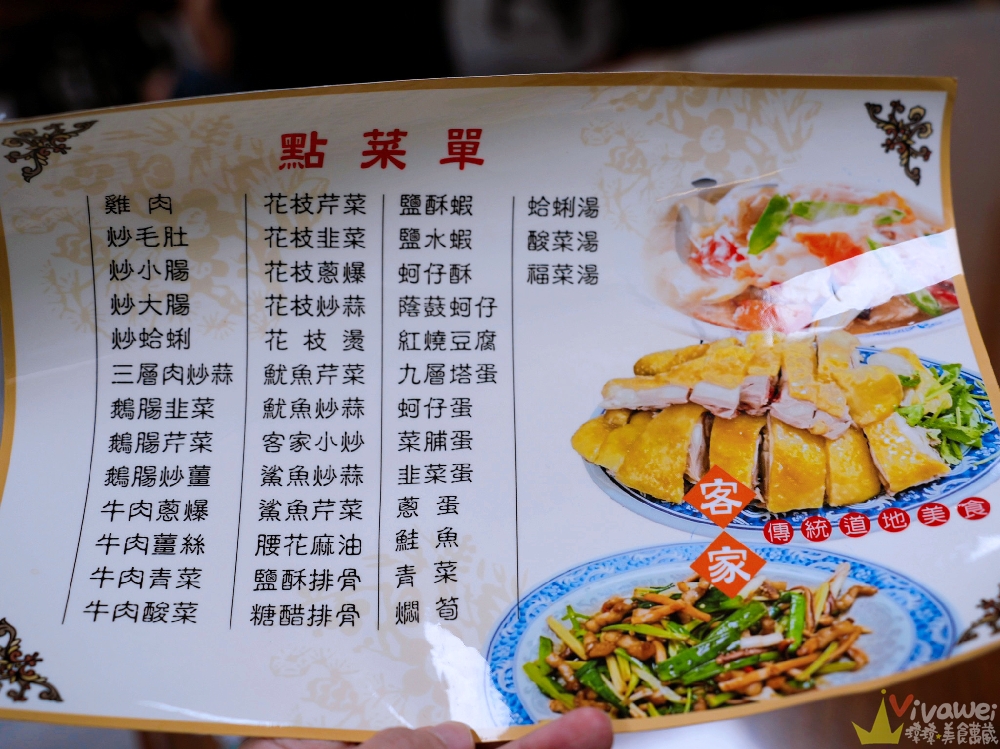 點菜單
雞肉
炒毛肚
炒小腸
炒大腸
炒蛤蜊
三層肉炒蒜
鵝腸韭菜
鵝腸芹菜
鵝腸炒薑
牛肉蔥爆
牛肉薑絲
牛肉青菜
牛肉酸菜
花枝芹菜
花枝韭菜
花枝蔥爆
花枝炒蒜
花枝燙
魷魚芹菜
魷魚炒蒜
客家小炒
鯊魚炒蒜
鯊魚芹菜
腰花麻油
鹽酥排骨
糖醋排骨
鹽酥蝦
鹽水蝦
蚵仔酥
蔭鼓蚵仔
紅燒豆腐
九層塔蛋
蚵仔蛋
菜脯蛋
韭菜蛋
蔥蛋
鮭魚
青菜
燜筍
蛤蜊湯
酸菜湯
福菜湯
客家
傳統道地美食
Vivawei